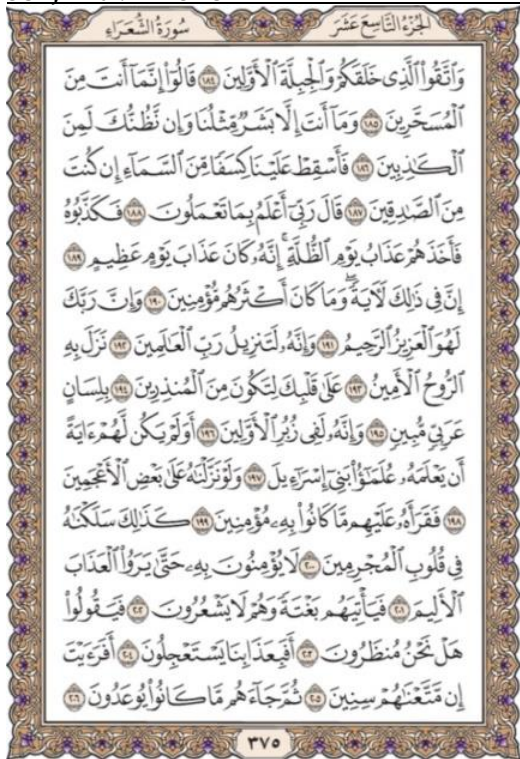 الجُزْءُ التَّاسِعَ عَشَرَ
سُورَةُ الشُّعَرَاءِ
وَٱتَّقُواْ ٱلَّذِى خَلَقَكُمْ وَٱلْجِبِلَّةَ ٱلْأَوَّلِينَ ١٨٤ قَالُوٓاْ إِنَّمَآ أَنتَ مِنَ
ٱلْمُسَحَّرِينَ ١٨٥ وَمَآ أَنتَ إِلَّا بَشَرٌ مِّثْلُنَا وَإِن نَّظُنُّكَ لَمِنَ
ٱلْكَٰذِبِينَ ١٨٦ فَأَسْقِطْ عَلَيْنَا كِسَفًا مِّنَ ٱلسَّمَآءِ إِن كُنتَ
مِنَ ٱلصَّٰدِقِينَ ١٨٧ قَالَ رَبِّىٓ أَعْلَمُ بِمَا تَعْمَلُونَ ١٨٨ فَكَذَّبُوهُ
فَأَخَذَهُمْ عَذَابُ يَوْمِ ٱلظُّلَّةِ ۚ إِنَّهُۥ كَانَ عَذَابَ يَوْمٍ عَظِيمٍ ١٨٩
إِنَّ فِى ذَٰلِكَ لَأٓيَةً ۖ وَمَا كَانَ أَكْثَرُهُم مُّؤْمِنِينَ ١٩٠ وَإِنَّ رَبَّكَ
لَهُوَ ٱلْعَزِيزُ ٱلرَّحِيمُ ١٩١ وَإِنَّهُۥ لَتَنزِيلُ رَبِّ ٱلْعَٰلَمِينَ ١٩٢ نَزَلَ بِهِ
ٱلرُّوحُ ٱلْأَمِينُ ١٩٣ عَلَىٰ قَلْبِكَ لِتَكُونَ مِنَ ٱلْمُنذِرِينَ ١٩٤ بِلِسَانٍ
عَرَبِىٍّ مُّبِينٍ ١٩٥ وَإِنَّهُۥ لَفِى زُبُرِ ٱلْأَوَّلِينَ ١٩٦ أَوَلَمْ يَكُن لَّهُمْ ءَايَةً
أَن يَعْلَمَهُۥ عُلَمَٰٓؤُاْ بَنِىٓ إِسْرَٰٓءِيلَ ١٩٧ وَلَوْ نَزَّلْنَٰهُ عَلَىٰ بَعْضِ ٱلْأَعْجَمِينَ
١٩٨ فَقَرَأَهُۥ عَلَيْهِم مَّا كَانُواْ بِهِۦ مُؤْمِنِينَ ١٩٩ كَذَٰلِكَ سَلَكْنَٰهُ
فِى قُلُوبِ ٱلْمُجْرِمِينَ ٢٠٠ لَا يُؤْمِنُونَ بِهِۦ حَتَّىٰ يَرَوُاْ ٱلْعَذَابَ
ٱلْأَلِيمَ ٢٠١ فَيَأْتِيَهُم بَغْتَةً وَهُمْ لَا يَشْعُرُونَ ٢٠٢ فَيَقُولُواْ
هَلْ نَحْنُ مُنظَرُونَ ٢٠٣ أَفَبِعَذَابِنَا يَسْتَعْجِلُونَ ٢٠٤ أَفَرَءَيْتَ
إِن مَّتَّعْنَٰهُمْ سِنِينَ ٢٠٥ ثُمَّ جَآءَهُم مَّا كَانُواْ يُوعَدُونَ ٢٠٦
٣٧٥